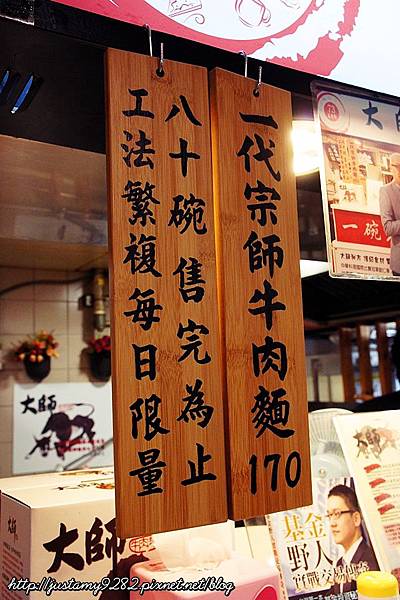 一代宗師牛肉麵 170
工法繁複每日限量
八十碗售完為止
大
一碗
大師
大師
基金
野人
實戰交易傳
http://justamy9282.pixnet.net/blog